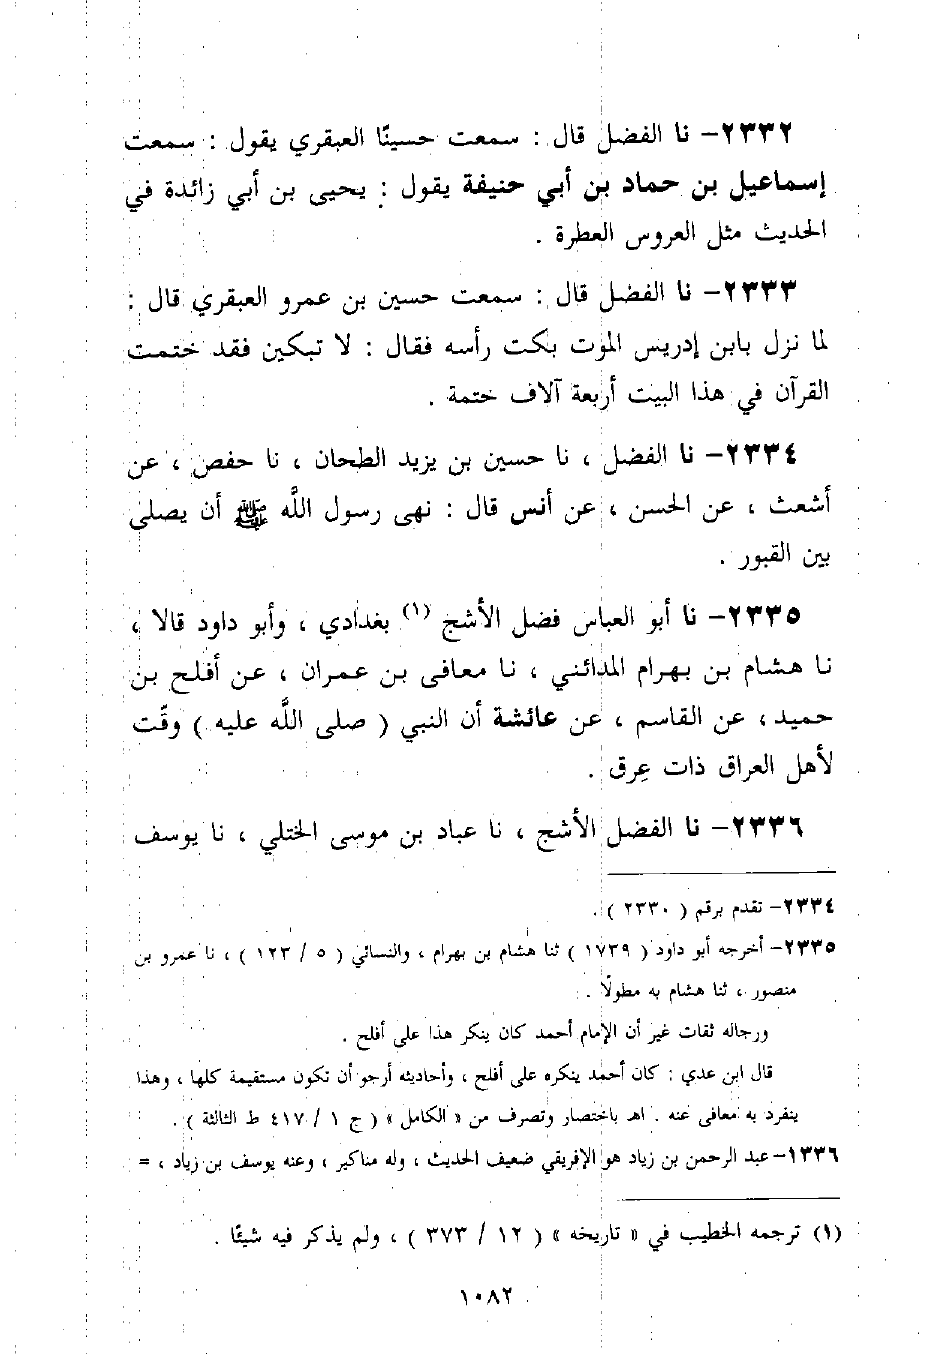 ٢٣٣٢- نا الفضل قال : سمعت حسينًا العبقري يقول : سمعت
إسماعيل بن حماد بن أبي حنيفة يقول : يحيى بن أبي زائدة في
الحديث مثل العروس العطرة .
٢٣٣٣- نا الفضل قال : سمعت حسين بن عمرو العبقري قال :
لما نزل بابن إدريس الموت بكت رأسه فقال : لا تبكين فقد ختمت
القرآن في هذا البيت أربعة آلاف ختمة .
٢٣٣٤- نا الفضل ، نا حسين بن يزيد الطحان ، نا حفص ، عن
أشعث ، عن الحسن ، عن أنس قال : نهى رسول اللَّه ﷺ أن يصلى
بين القبور .
٢٣٣٥- نا أبو العباس فضل الأشج (١) بغدادي ، وأبو داود قالا ،
نا هشام بن بهرام المدائني ، نا معافى بن عمران ، عن أفلح بن
حميد ، عن القاسم ، عن عائشة أن النبي ( صلى اللَّه عليه ) وقّت
لأهل العراق ذات عِرق .
٢٣٣٦- نا الفضل الأشج ، نا عباد بن موسى الختلي ، نا يوسف
٢٣٣٤- تقدم برقم ( ٢٣٣٠ ) .
٢٣٣٥- أخرجه أبو داود ( ١٧٣٩ ) ثنا هشام بن بهرام ، والنسائي ( ٥ / ١٢٣ ) ، نا عمرو بن
منصور ، ثنا هشام به مطولًا .
ورجاله ثقات غير أن الإمام أحمد كان ينكر هذا على أفلح .
قال ابن عدي : كان أحمد ينكره على أفلح ، وأحاديثه أرجو أن تكون مستقيمة كلها ، وهذا
ينفرد به معافى عنه . اهـ باختصار وتصرف من « الكامل » ( ج ١ / ٤١٧ ط الثالثة ) .
١٣٣٦- عبد الرحمن بن زياد هو الإفريقي ضعيف الحديث ، وله مناكير ، وعنه يوسف بن زياد ، =
(١) ترجمه الخطيب في « تاريخه » ( ١٢ / ٣٧٣ ) ، ولم يذكر فيه شيئًا .
١٠٨٢